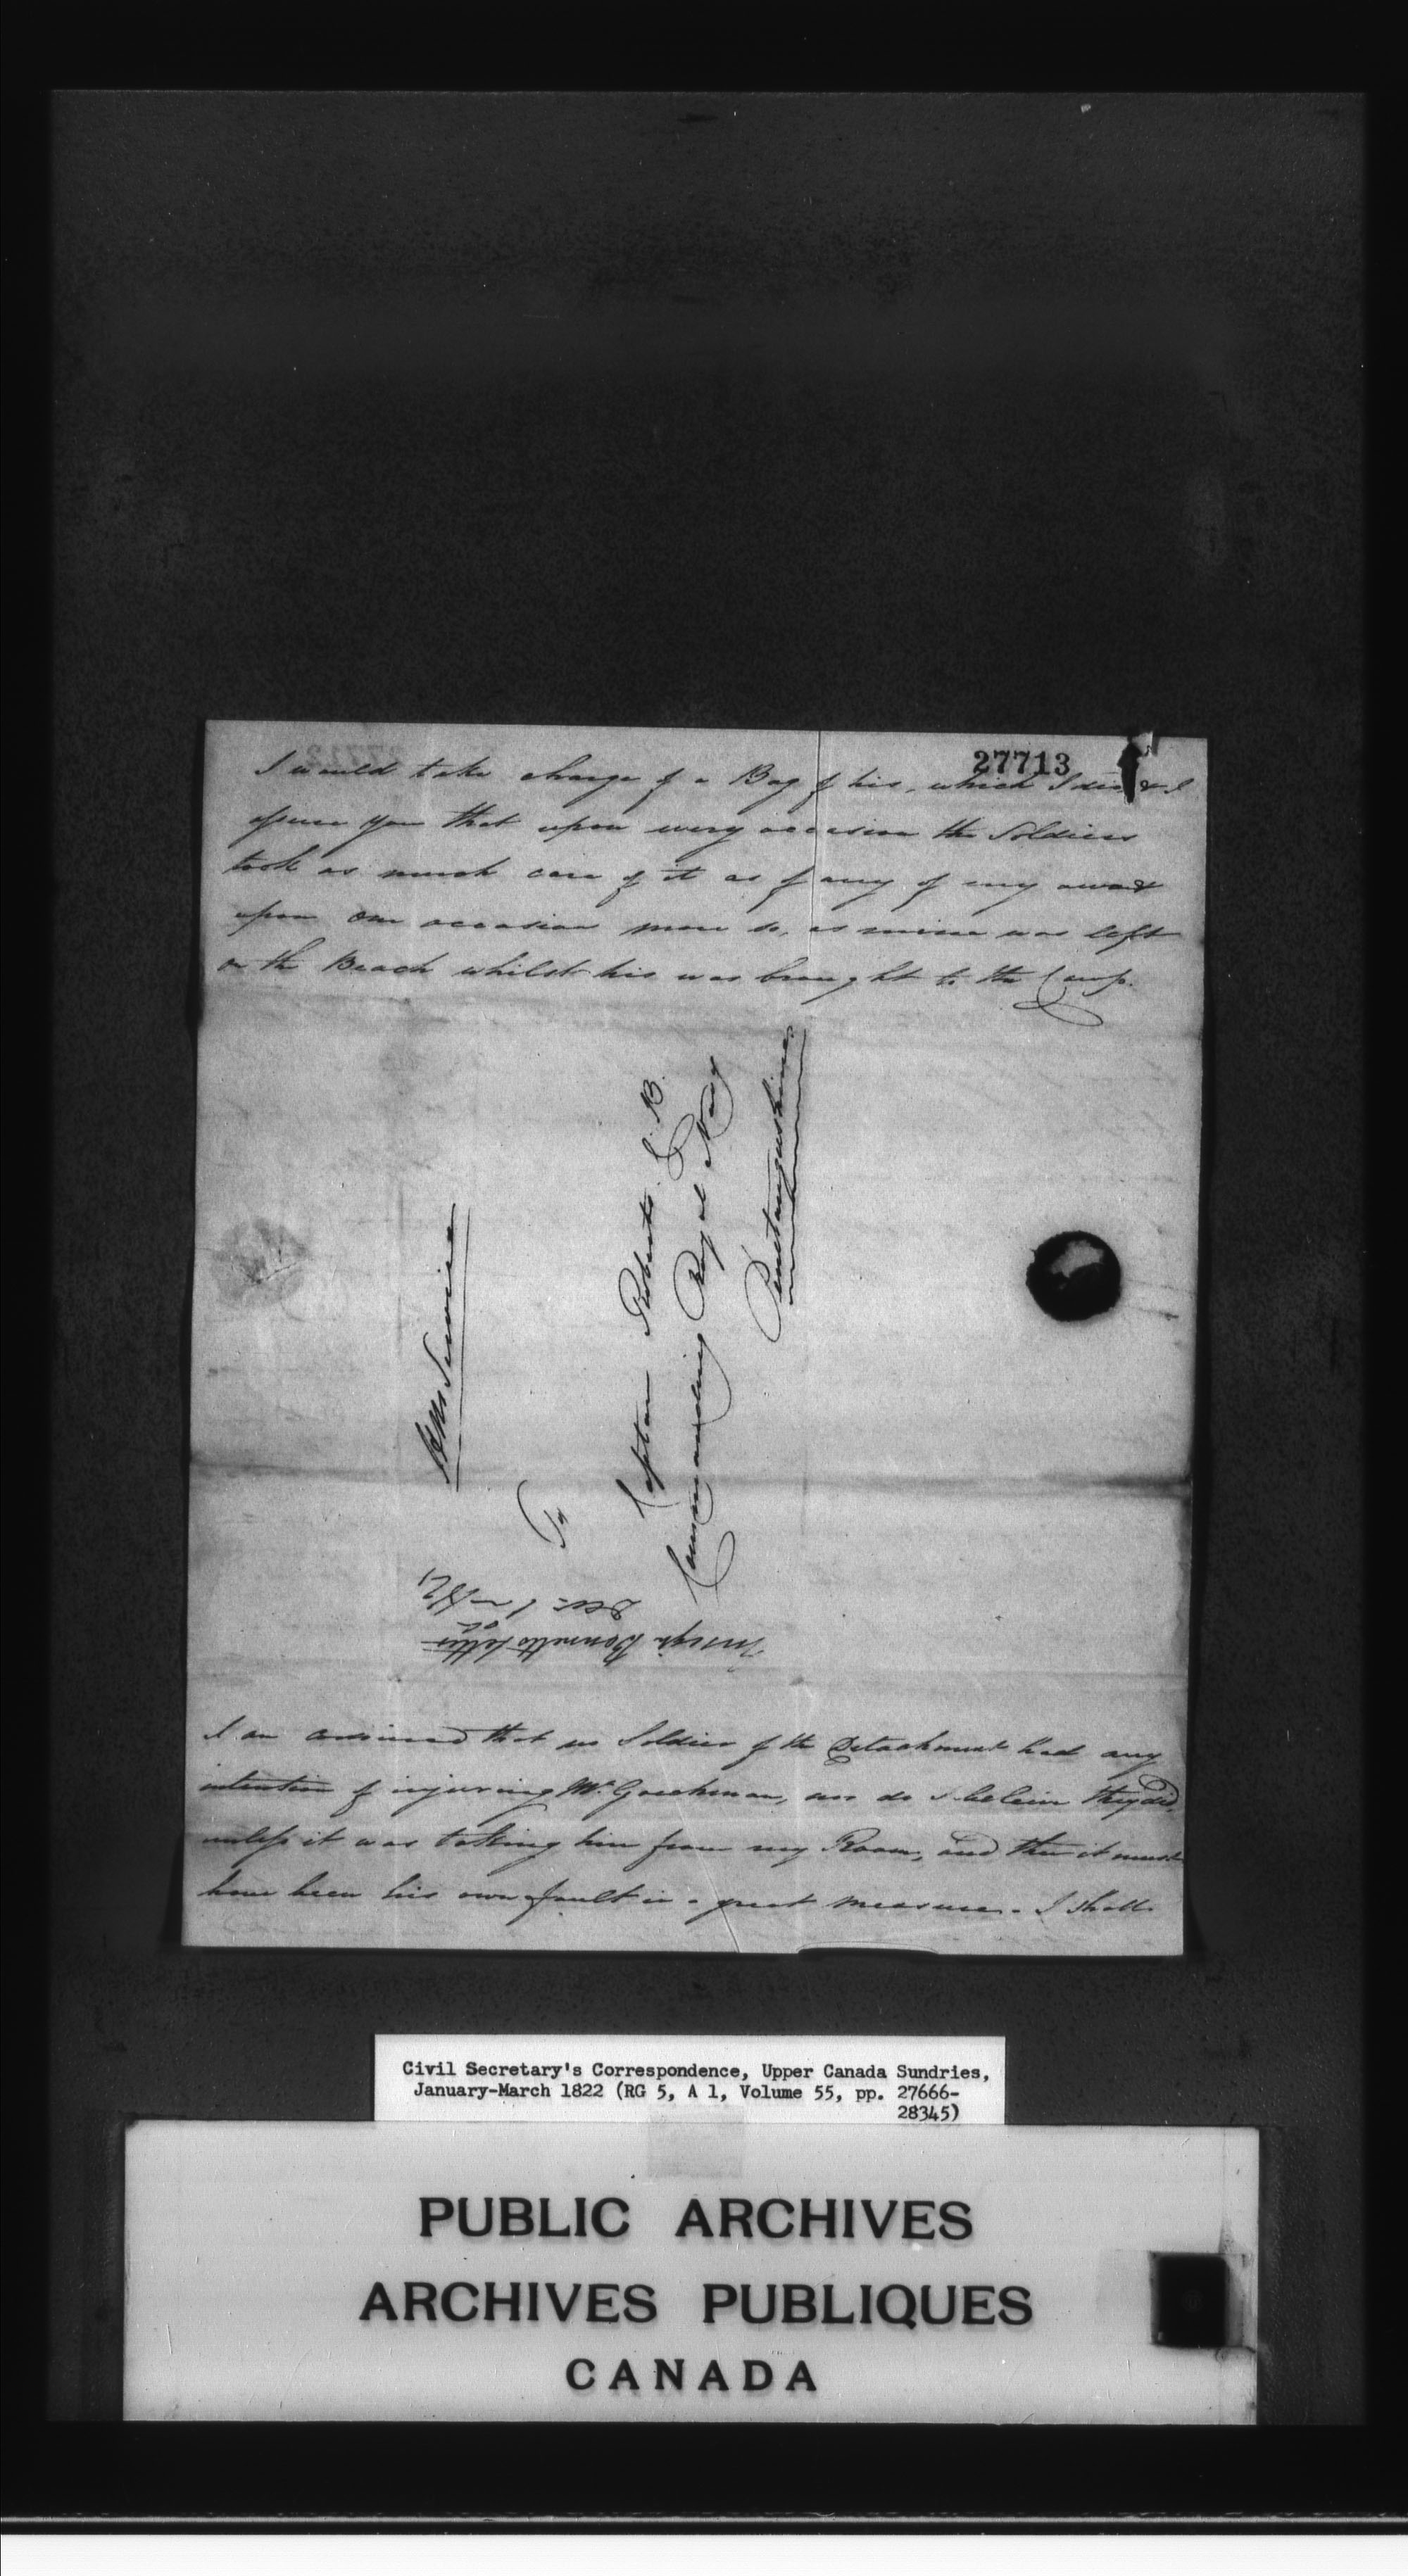 27713
I would take charge of a Bag of his, which I did & I
assure you that upon every occasion the Soldiers
took as much care of it as of any of my own &
upon one occasion more so, as mine was left
on the Beach whilst his was brought to the Camp.
HMs Service
To
Captain Roberts
Commanding Royal Navy
Penetanguishine
Ensign Bennetts letter
Decr 1 1821
I am convinced that no Soldier of the Detachment had any
intention of injuring Mr. nor do I believe they did,
unless it was taking him from my Room, and then it must
have been his own fault in a great measure. I shall
Civil Secretary's Correspondence, Upper Canada Sundries,
January-March 1822 (RG 5, A 1, Volume 55, pp. 27666-
28345)
PUBLIC ARCHIVES
ARCHIVES PUBLIQUES
CANADA